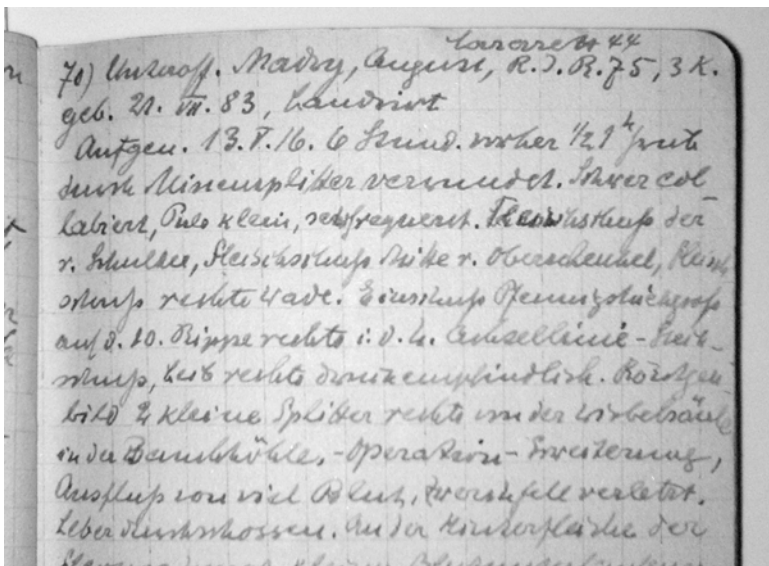 Lazarett 44
70) Unteroff. Madry, August, R.I.R. 75, 3 K.
geb. 21. VII. 83, Landwirt
Aufgen. 13. V. 16. 6 Stund. vorher ½ 1 h früh
durch Minensplitter verwundet. Schwer col-
labiert, Puls klein, sehr frequent. Fleischschuß der
r. Schulter, Fleischschuß Mitte r. Oberschenkel, Fleisch-
schuß rechte Wade. Einschuß Pfennigstückgroß
auf d. 10. Rippe rechts i. d. h. Achsellinie - Steck-
schuß, Leib rechts druckempfindlich. Röntgen-
bild 2 kleine Splitter rechts von der Wirbelsäule
in der Bauchhöhle. - Operation - Erweiterung,
Ausfluß von viel Blut, Zwerchfell verletzt.
Leber durchschossen. An der Hinterfläche der